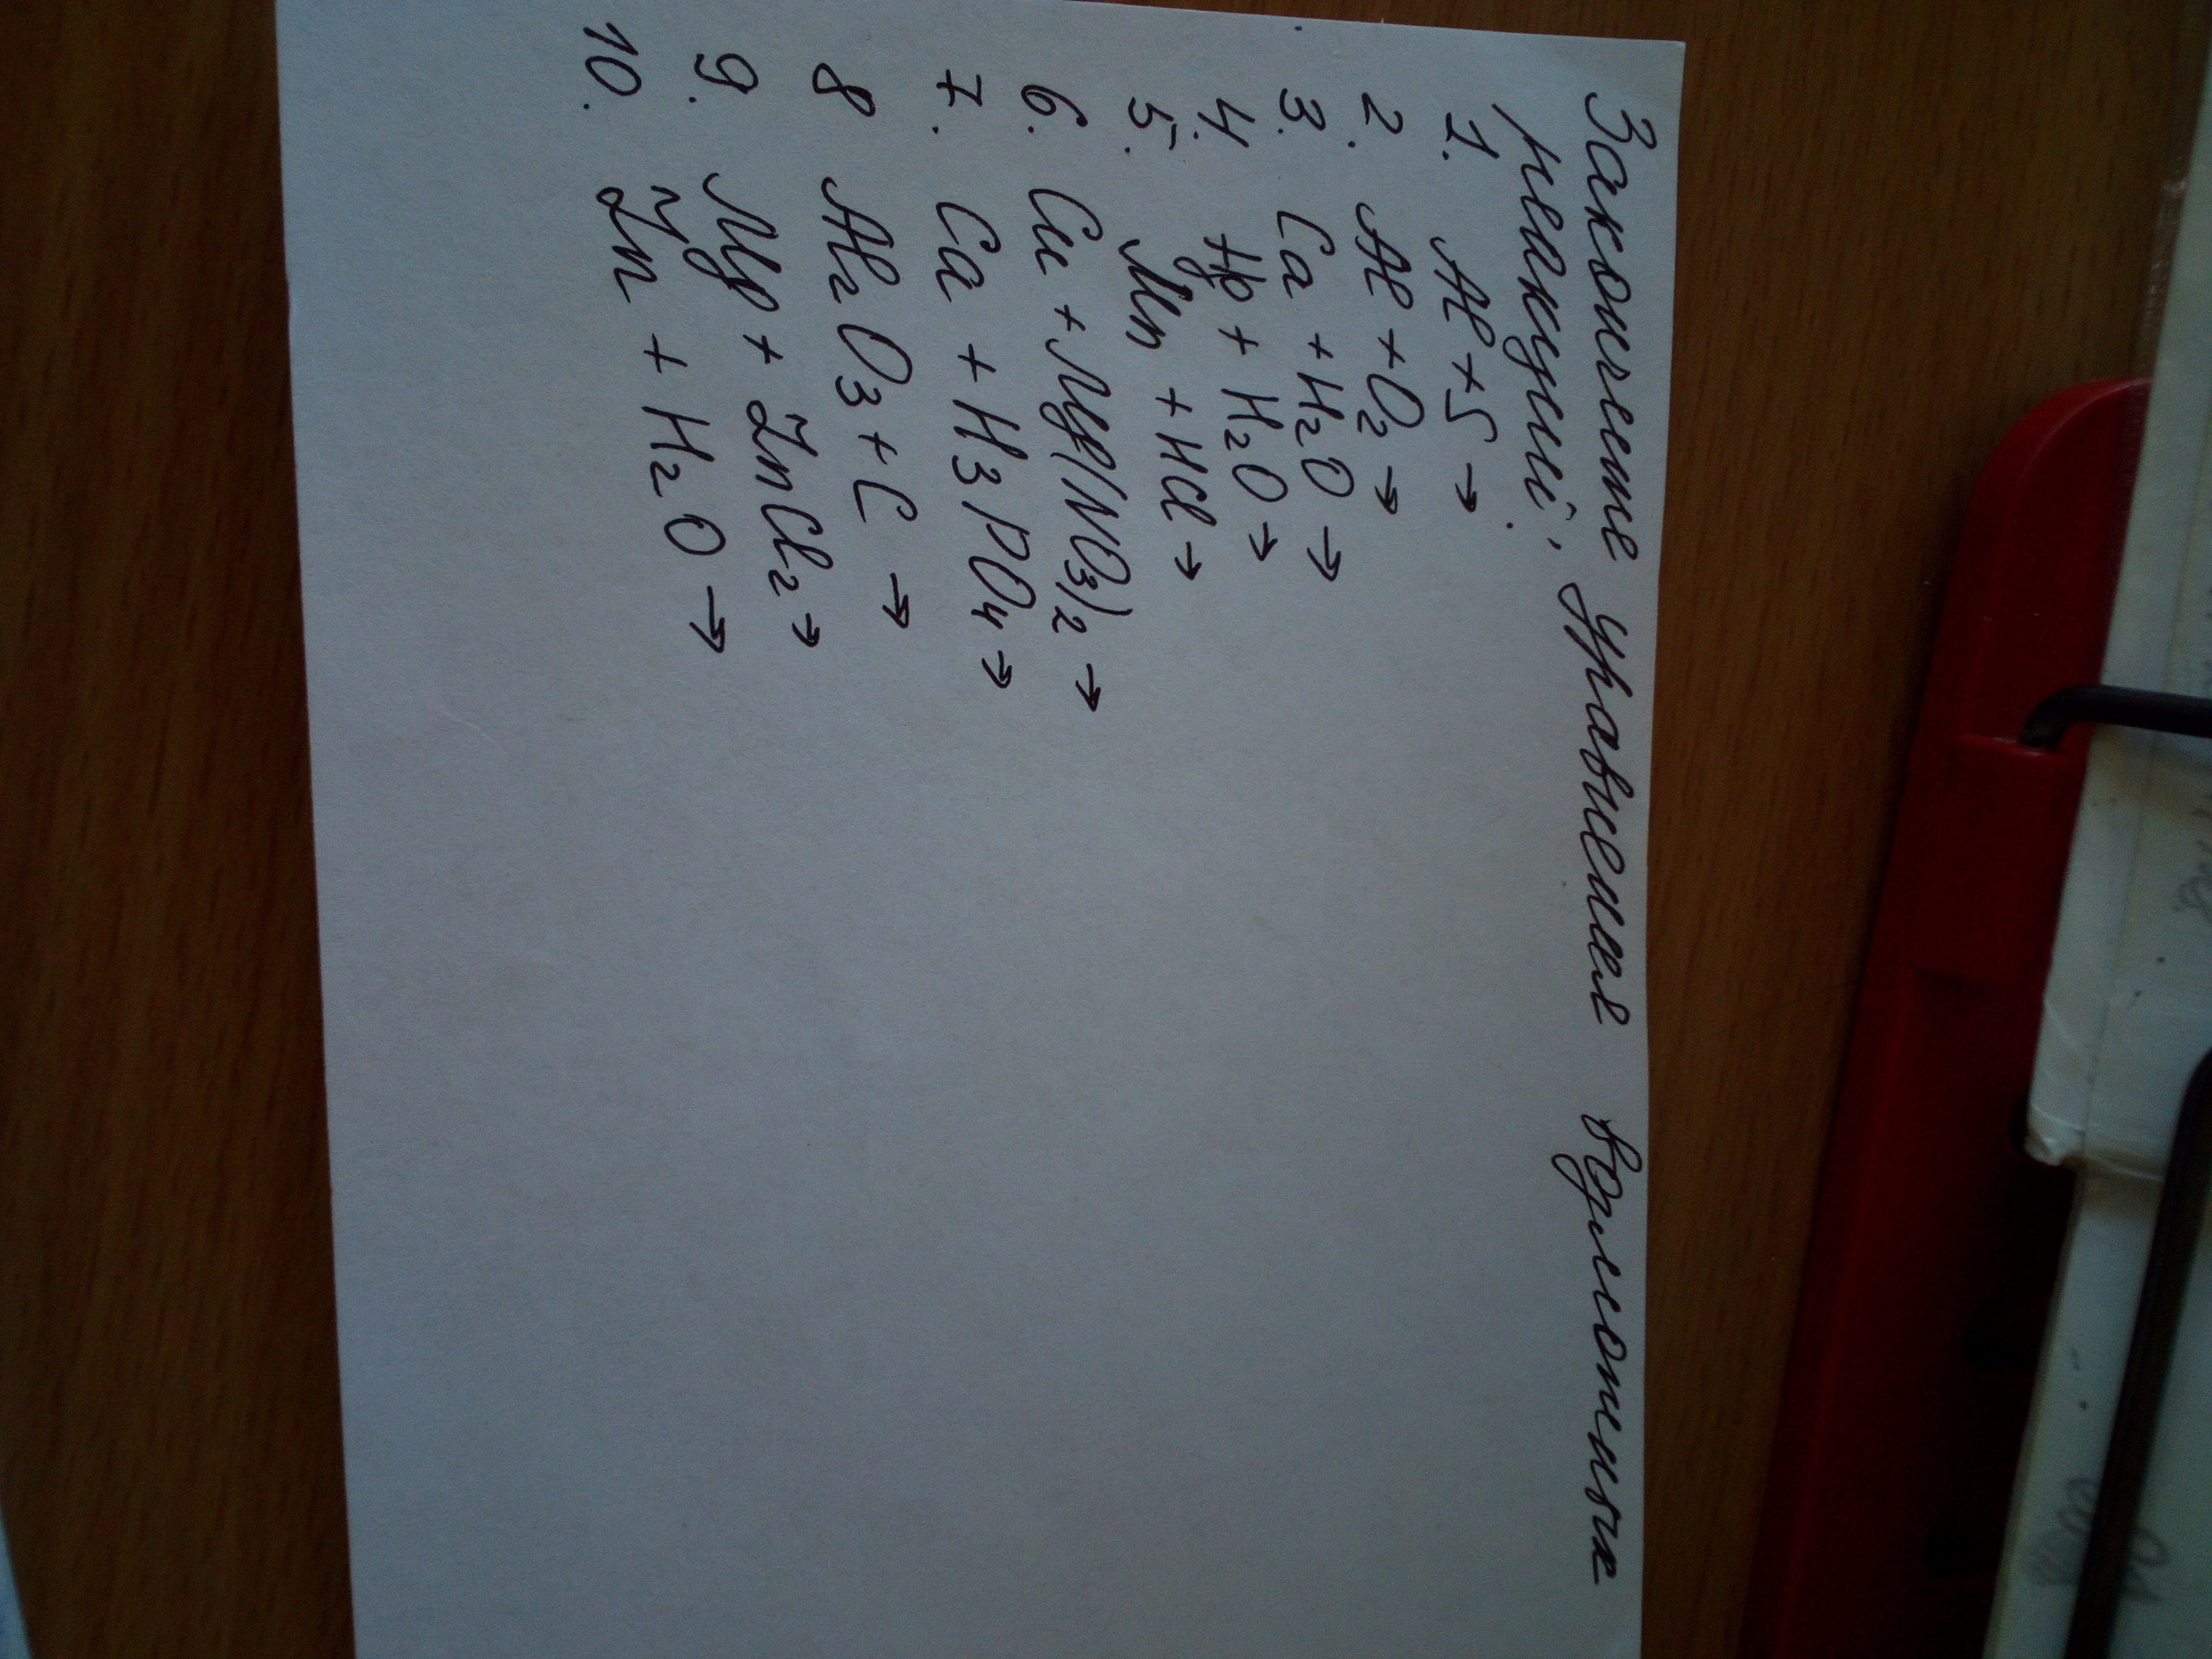 Закончите уравнения возможных
реакций:
1. Al + S →
2. Al + O₂ →
3. Ca + H₂O →
4. Hg + H₂O →
5. Mn + HCl →
6. Cu + Mg(NO₃)₂ →
7. Ca + H₃PO₄ →
8 Al₂O₃ + C →
9. Mg + ZnCl₂ →
10. Zn + H₂O →